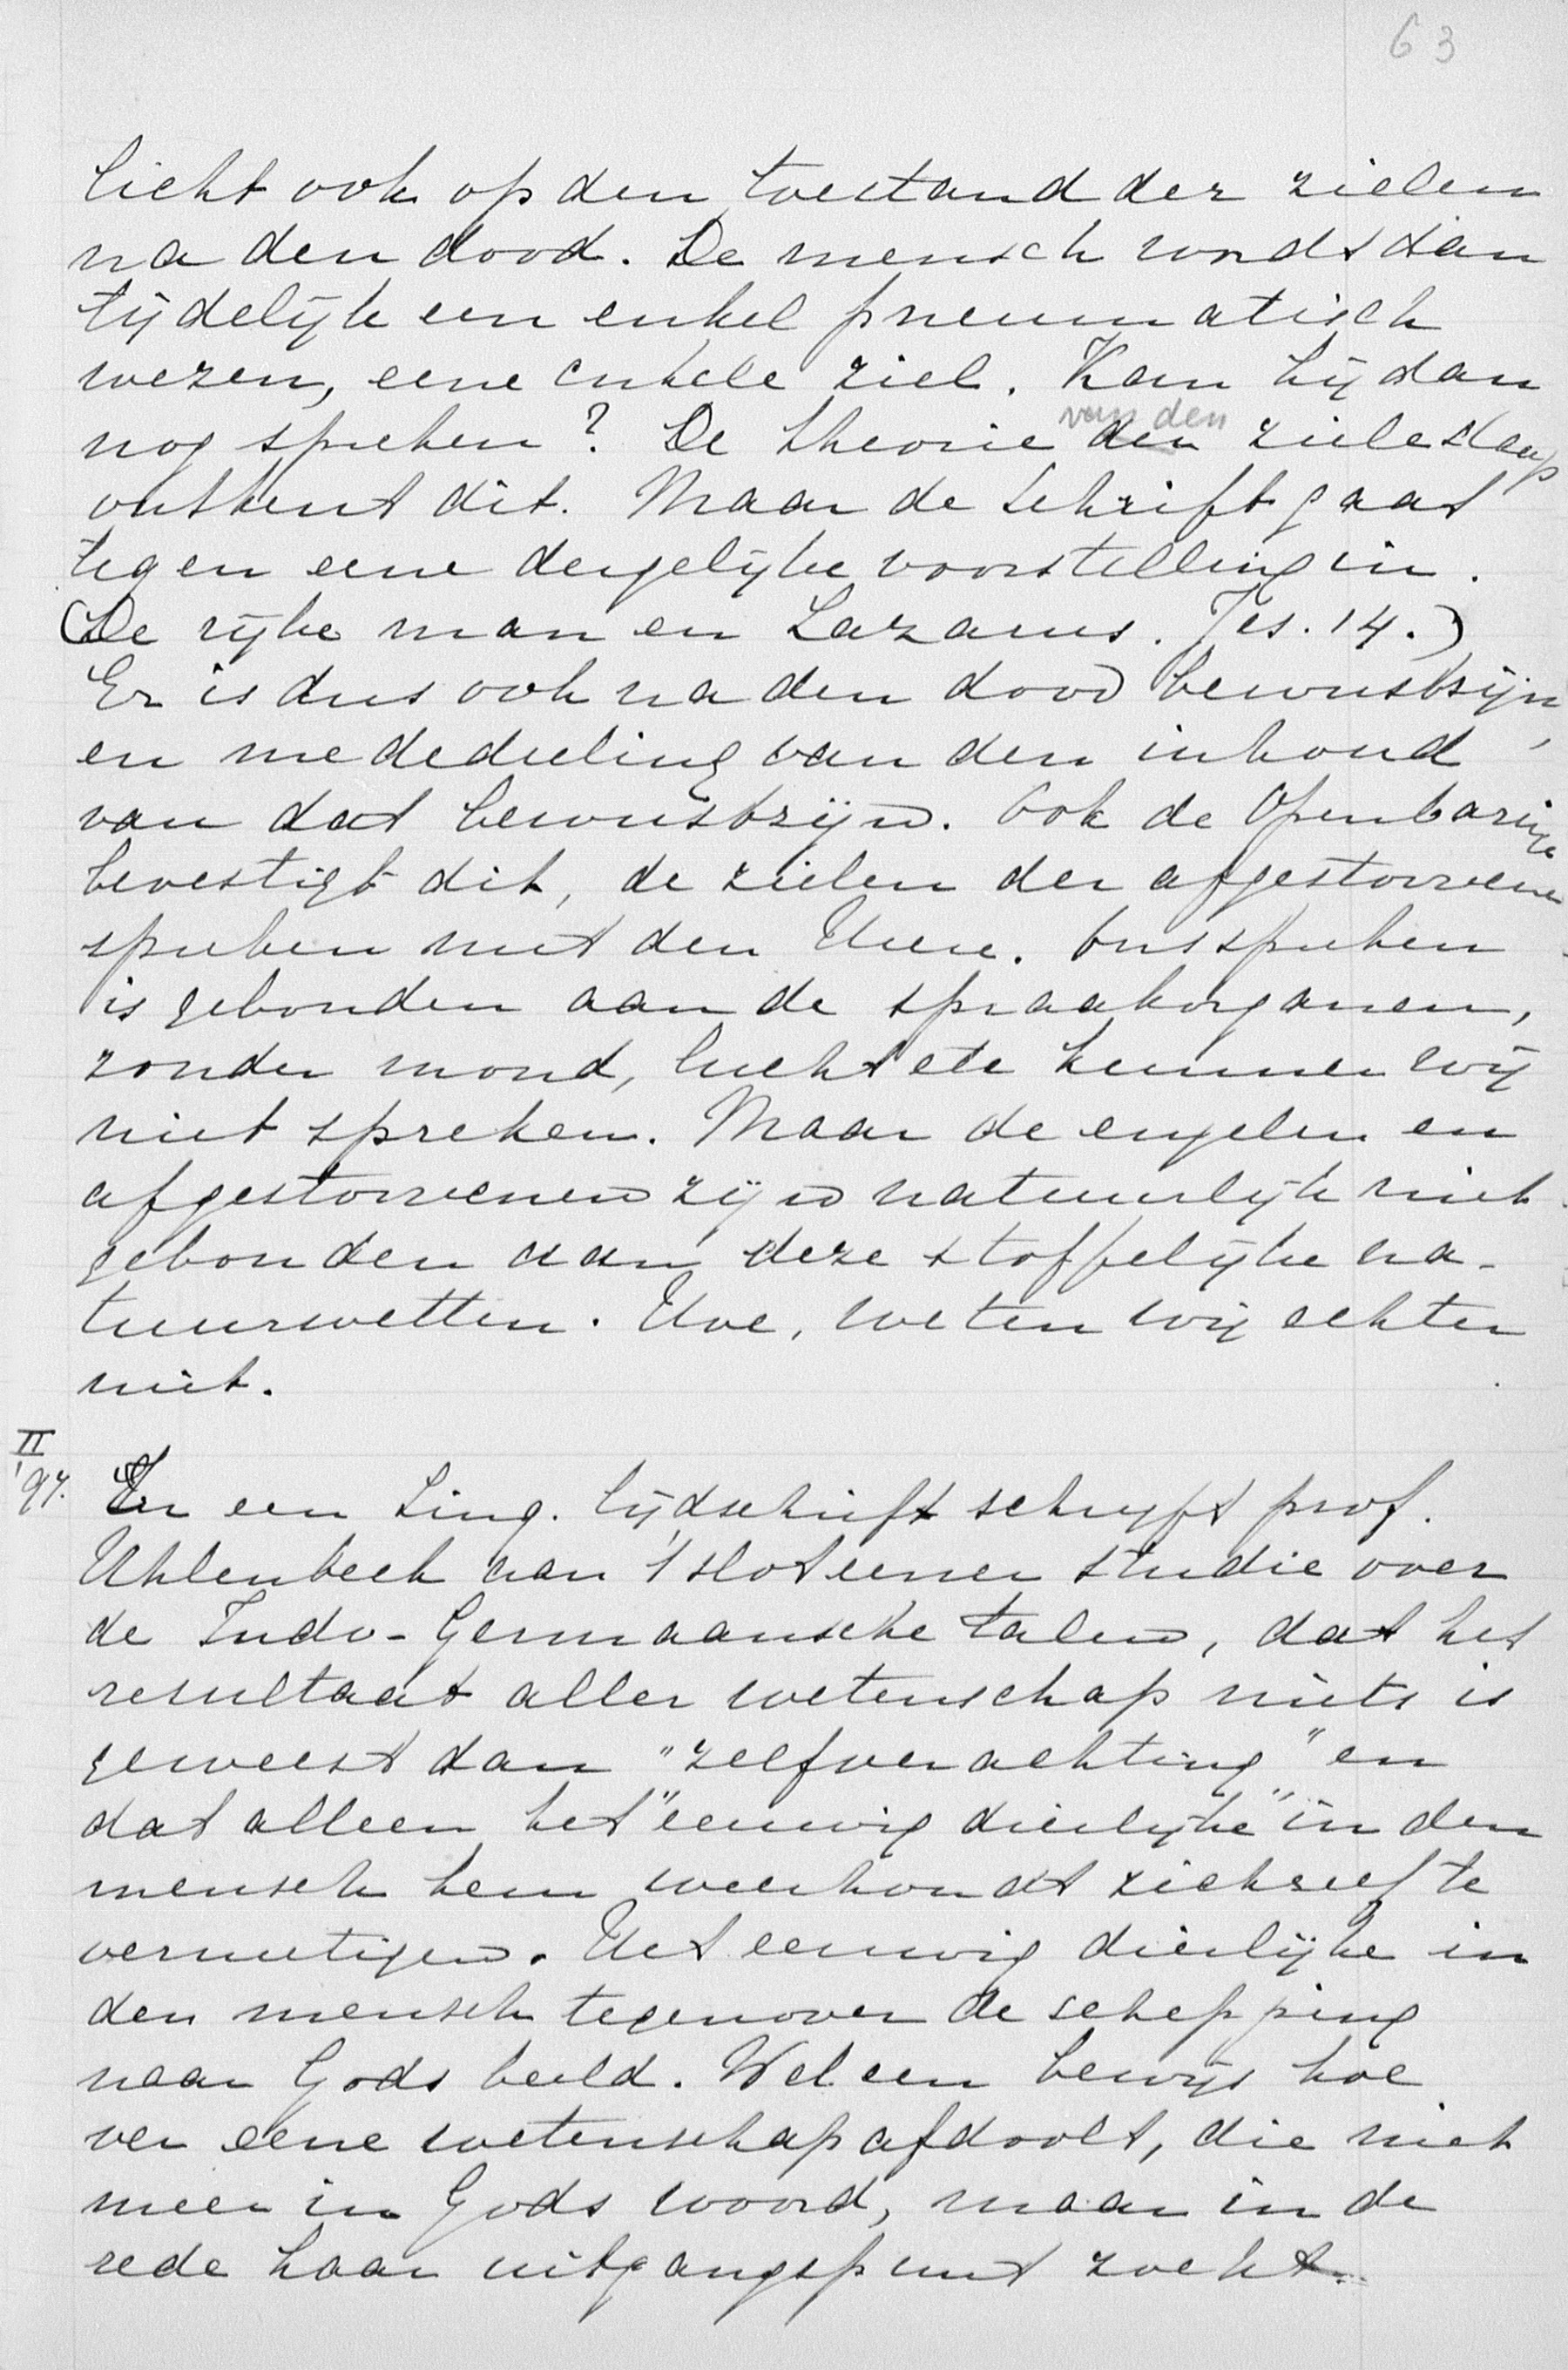 63
licht ook op den toestand der zielen
na den dood. De mensch wordt dan
tijdelijk een enkel pneumatisch
wezen, eene enkele ziel. Kan hij dan
van den
nog spreken? De theorie den zieleslaap
ontkent dit. Maar de Schrift gaat
tegen eene dergelijke voorstelling in.
(De rijke man en Lazarus. Jes. 14.)
Er is dus ook na den dood bewustzijn,
en mededeeling van den inhoud
van dat bewustzijn. Ook de Openbaring
bevestigt dit, de zielen der afgestorvenen
spreken met den Heere. Ons spreken
is gebonden aan de spraakorganen,
zonder mond, lucht etc kunnen wij
niet spreken. Maar de engelen en
afgestorvenen zijn natuurlijk niet
gebonden aan deze stoffelijke na-
tuurwetten. Hoe, weten wij echter
niet.
II
'97. In een Ling. tijdschrift schrijft prof.
Uhlenbeck aan 't slot eener studie over
de Indo-Germaansche talen, dat het
resultaat aller wetenschap niets is
geweest dan "zelfverachting" en
dat alleen het "eeuwig dierlijke" in den
mensch hem weerhoudt zichzelf te
vernietigen. Het eeuwig dierlijke in
den mensch tegenover de schepping
naar Gods beeld. Wel een bewijs hoe
ver eene wetenschap afdoolt, die niet
meer in Gods woord, maar in de
rede haar uitgangspunt zoekt.